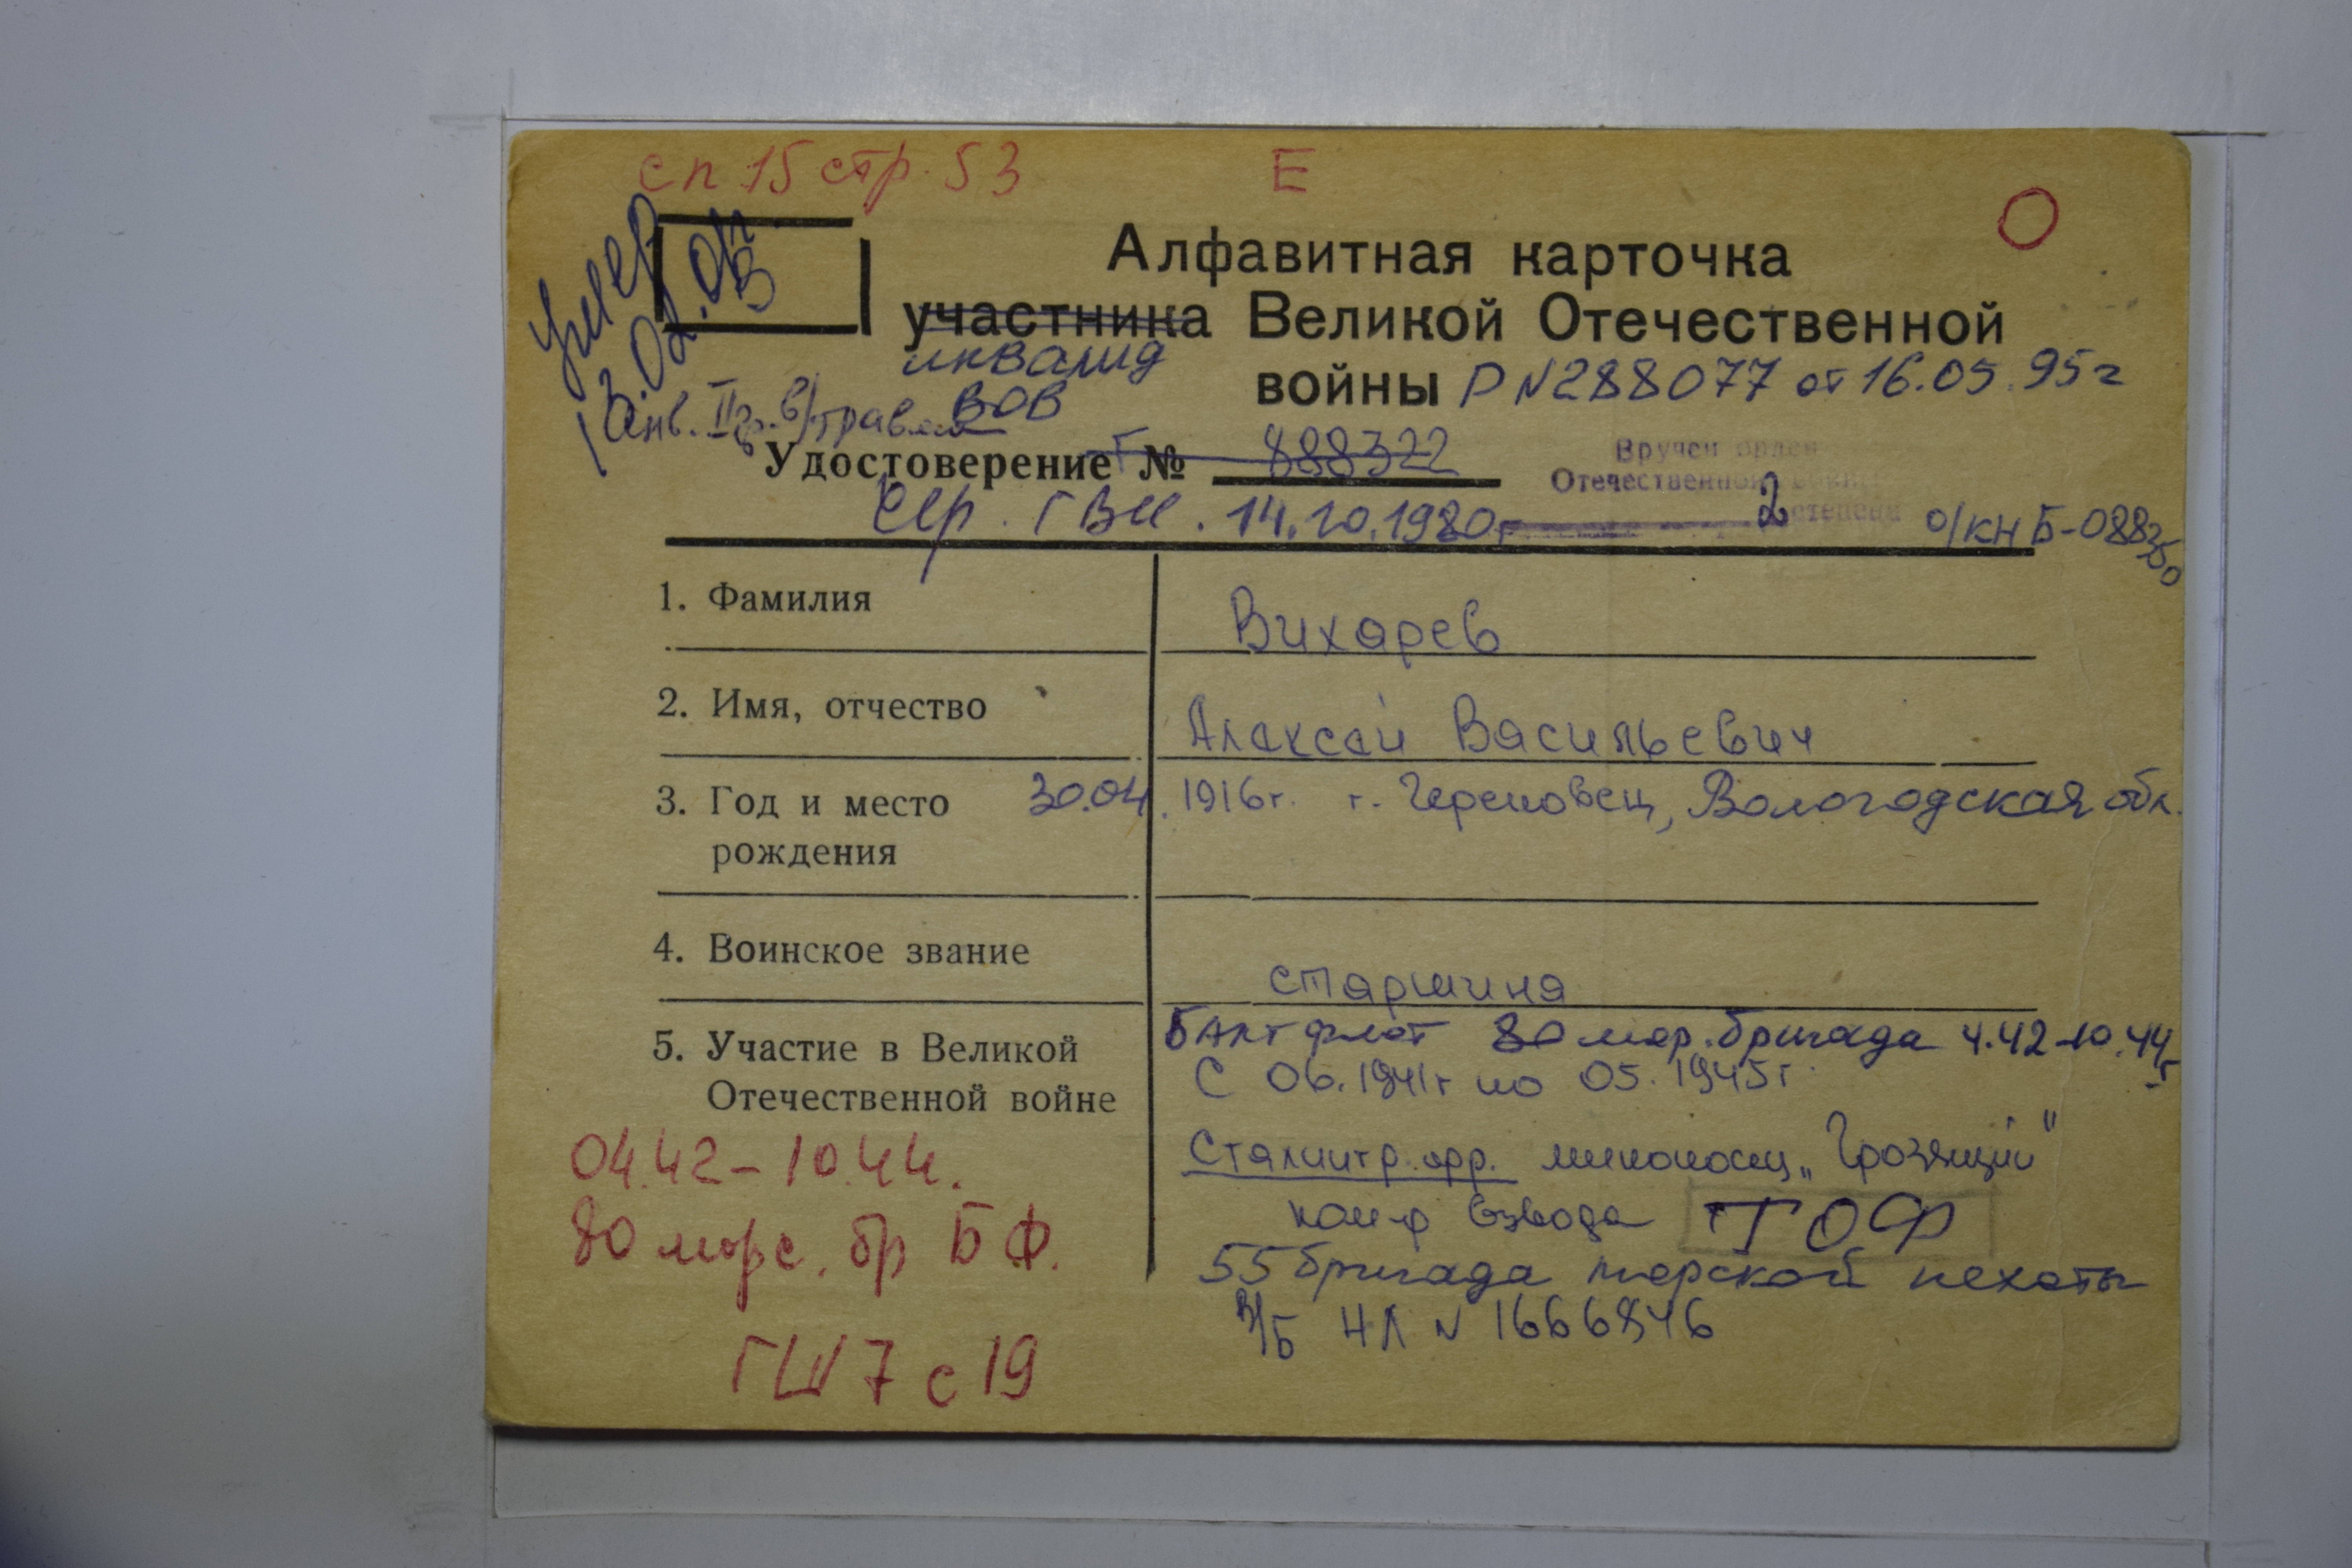 сп 15 стр. 53 Е О
умер
13.02.01г
В
Алфавитная карточка
участника Великой Отечественной
инвалид
ВОВ
войны Р N 288077 от 16.05.95г
инв. II гр. в/травма
Удостоверение Т № 888322
Вручен орден
Отечественной войны
2 степени
сер. ГВИ. 14.10.1980г о/кн Б-088350
1. Фамилия Вихарев
2. Имя, отчество Алексей Васильевич
3. Год и место 30.04.1916г. г. Череповец, Вологодская обл.
рождения
4. Воинское звание старшина
Балт флот 80 мор. бригада 4.42-10.44г
5. Участие в Великой
С 06.1941г по 05.1945г.
Отечественной войне
04.42-10.44. Сталингр. фр. миноносец „Грозящий"
80 морс. бр БФ. ком-р взвода ТОФ
55 бригада морской пехоты
в/б НЛ N 1666846
ГШ 7 с 19